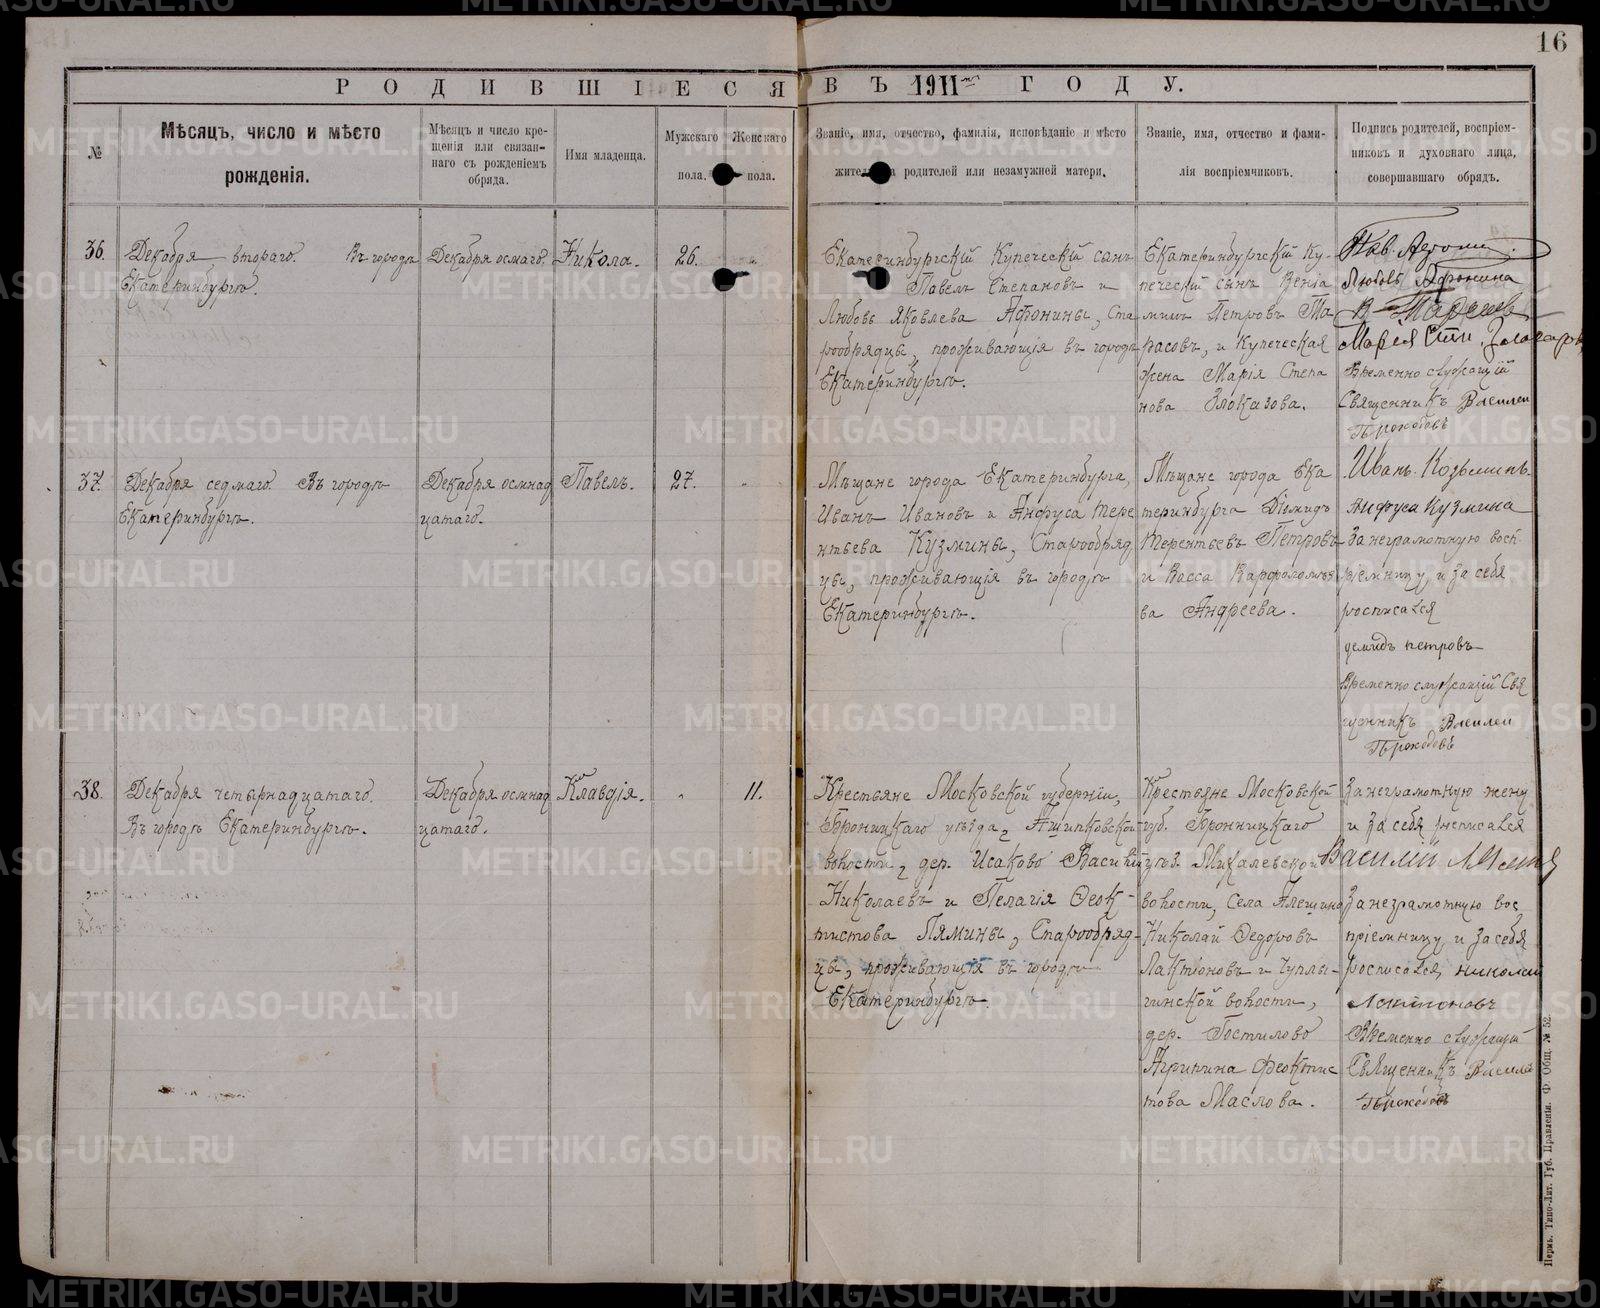 16
РОДИВШІЕСЯ ВЪ 1911 ГОДУ.
№
Мѣсяцъ, число и мѣсто
рожденія.
Мѣсяцъ и число кре-
щенія или связан-
наго съ рожденіемъ
обряда.
Имя младенца.
Мужскаго
пола.
Женскаго
пола.
Званіе, имя, отчество, фамилія, исповѣданіе и мѣсто
родителей или незамужней матери.
Званіе, имя, отчество и фами-
лія воспріемчиковъ.
Подпись родителей, воспріем-
никовъ и духовнаго лица,
совершавшаго обрядъ.
36.
Декабря втораго. Въ городѣ
Екатеринбургѣ.
Декабря осмаго.
Никола.
26.
Екатеринбургскій Купеческій сынъ
Павелъ Степановъ и
Любовь Яковлева Афонины, Ста
рообрядцы, проживающія въ городѣ
Екатеринбургѣ.
Екатеринбургскій Ку-
печескій сынъ Веніа
минъ Петровъ Та
расовъ, и Купеческая
жена Марія Степа
нова Злоказова.
Любовь Афонина
Марія Степ.
Временно служащій
Священникъ Василій
37.
Декабря седмаго. Въ городѣ
Екатеринбургѣ.
Декабря осмнад
цатаго.
Павелъ.
27.
Мѣщане города Екатеринбурга,
Иванъ Ивановъ и Анфуса Тере
нтьева Кузмины, Старообряд
цы, проживающія въ городѣ
Екатеринбургѣ.
Мѣщане города Ека
теринбурга Діомидъ
Терентьевъ Петровъ
и Васса Варфоломѣе
ва Андреева.
Иванъ Козьминъ.
Анфуса Кузмина
За неграмотную восп-
ріемницу, и за себя
росписался
демидъ петровъ
Временно служащій Свя
щенникъ Василій
38.
Декабря четырнадцатаго.
Въ городѣ Екатеринбургѣ.
Декабря осмнад
цатаго.
Клавдія.
11.
Крестьяне Московской губерніи,
Броницкаго уѣзда, Ашитковской
волости, дер. Исаково Василій
Николаевъ и Пелагія Феок-
тистова Лямины, Старообряд-
цы, проживающія въ городѣ
Екатеринбургѣ.
Крестьяне Московской
губ. Бронницкаго
уѣз. Михалевской
волости, села Алешино
Николай Федоровъ
Лактіоновъ и Чуплы-
гинской волости,
дер. Гостилово
Агрипина Феоктис
това Маслова.
За неграмотную жену
и за себя росписался
Василій
За неграмотную вос
пріемницу, и за себя
росписался, николай
Временно служащій
Священникъ Василій
Пермь. Типо-Лит. Губ. Правленія. Ф. Общ. № 52.
METRIKI.GASO-URAL.RU